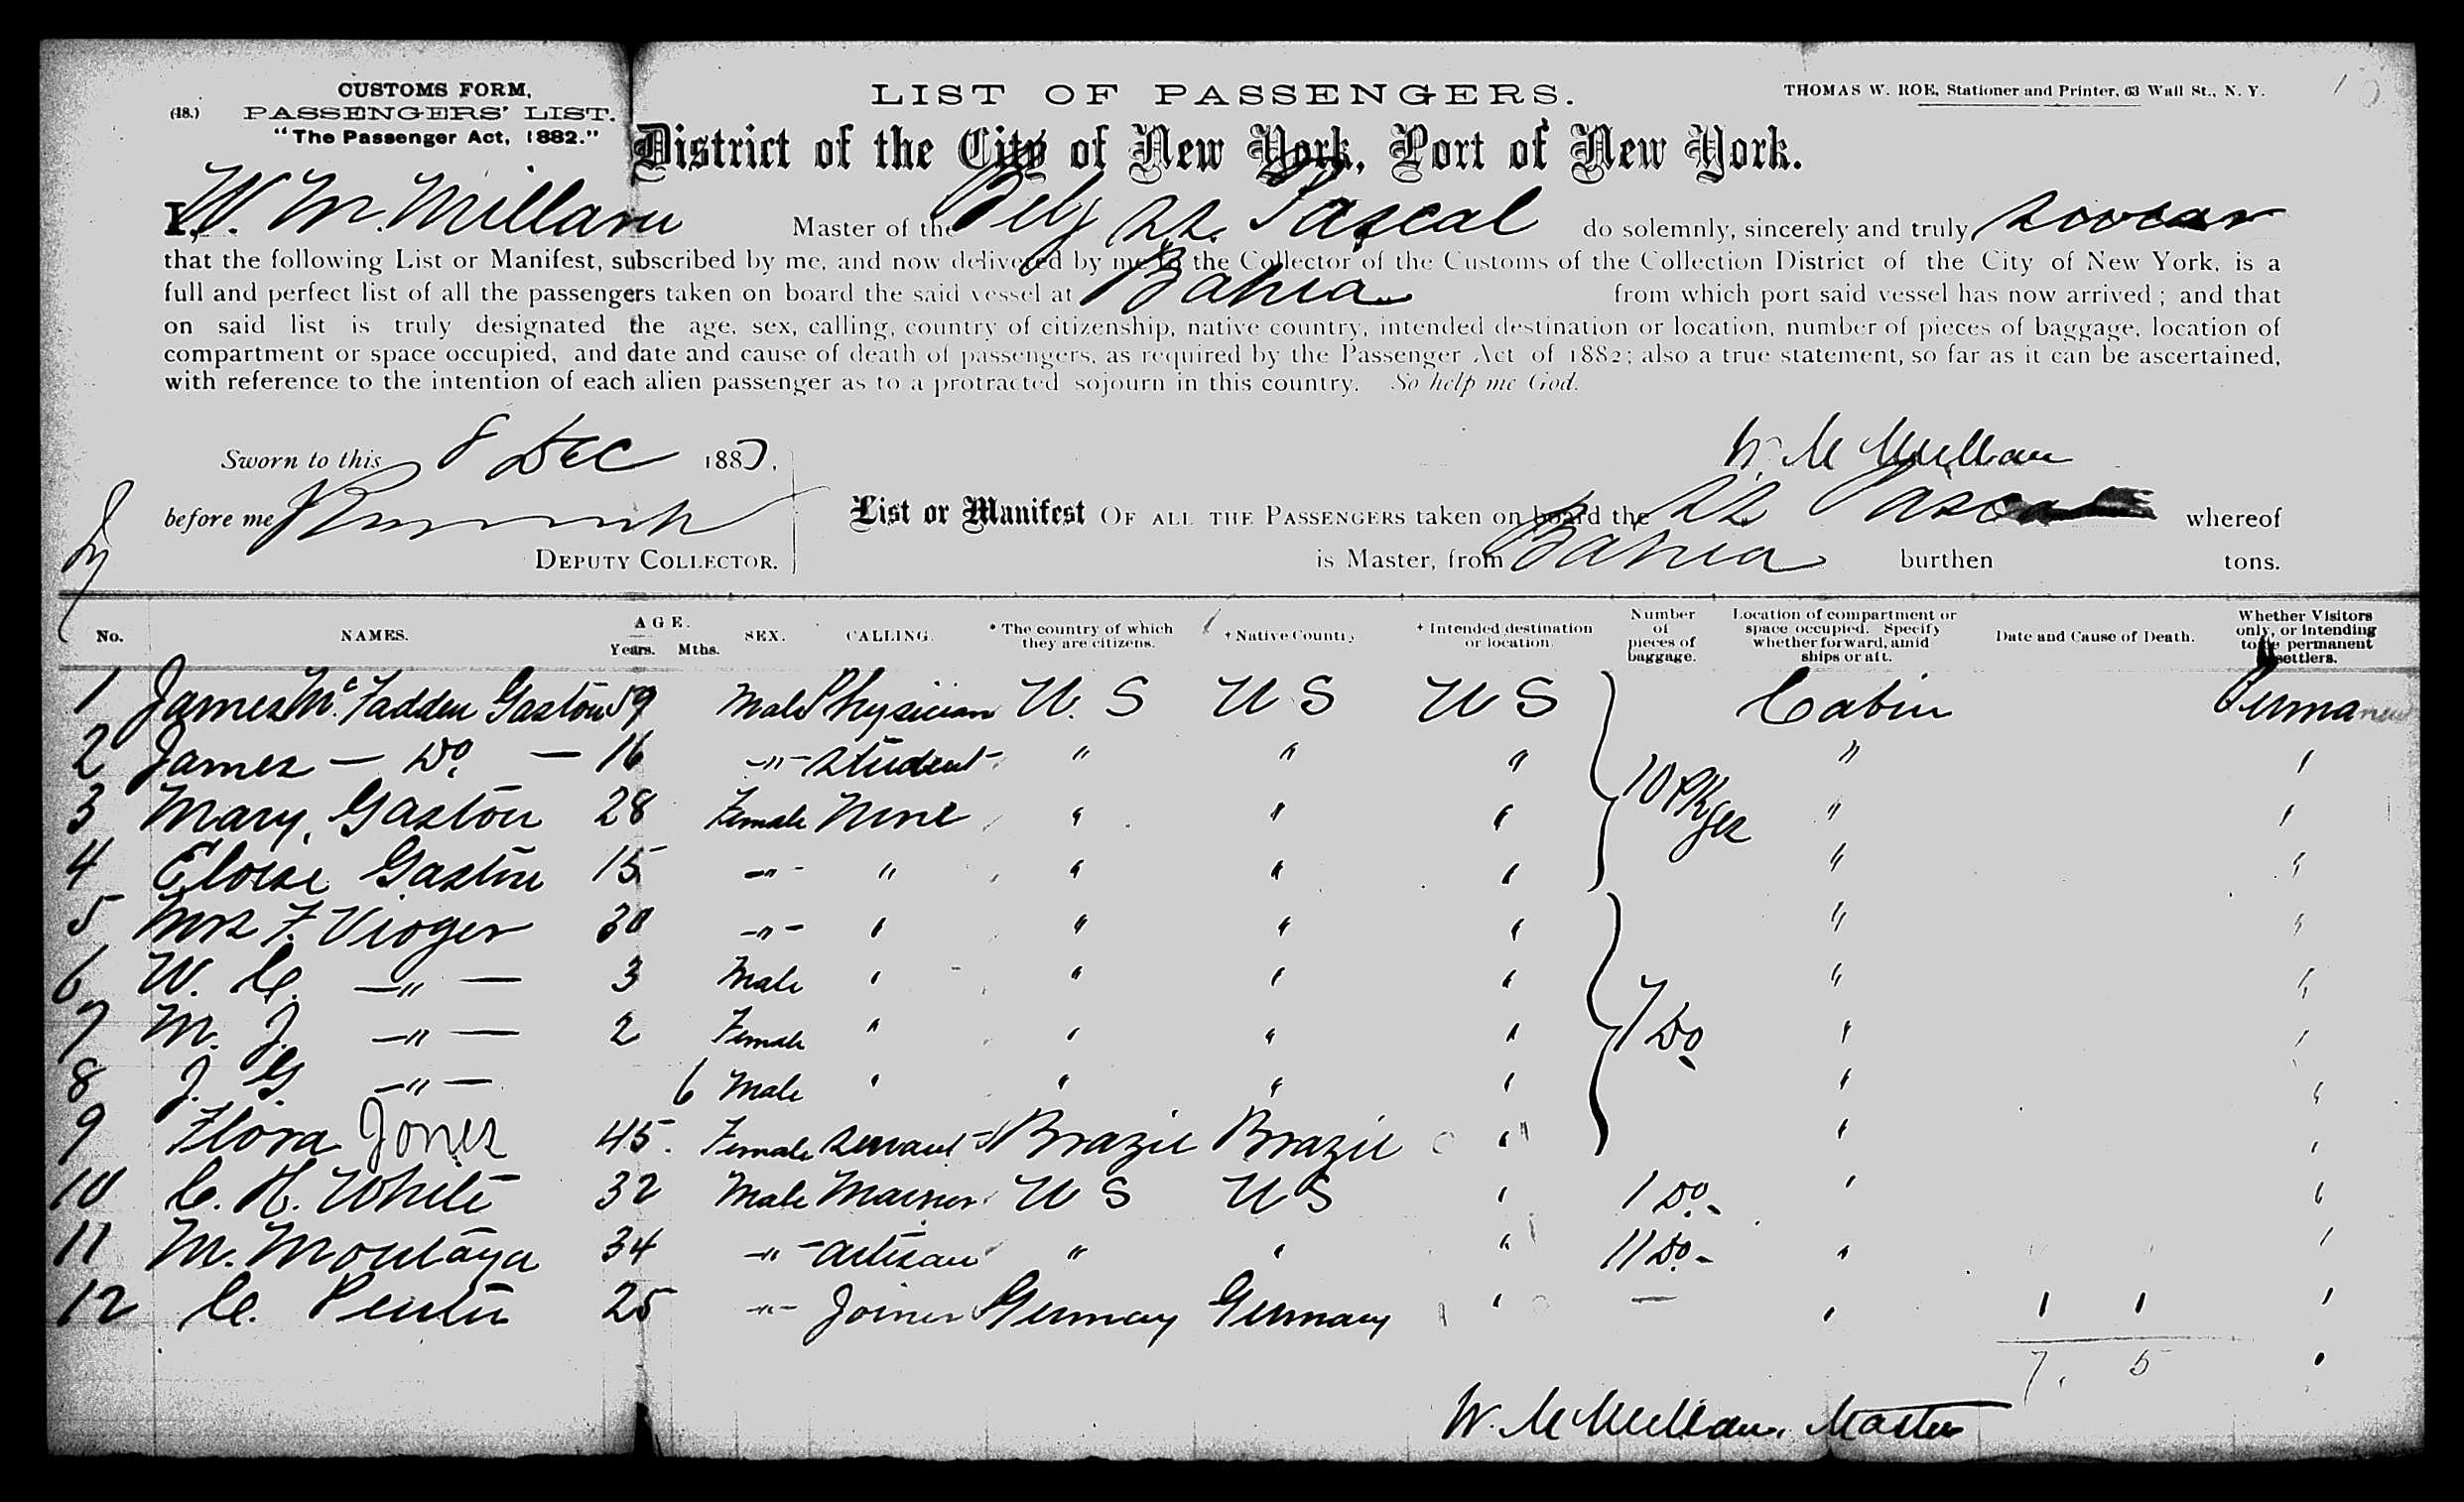 CUSTOMS FORM,
(18.) PASSENGERS' LIST.
"The Passenger Act, 1882."
LIST OF PASSENGERS.
THOMAS W. ROE, Stationer and Printer, 63 Wall St., N. Y.
District of the City of New York, Port of New York.
I, W. McMillan Master of the Belg SS. Pascal do solemnly, sincerely and truly swear
that the following List or Manifest, subscribed by me, and now delivered by me to the Collector of the Customs of the Collection District of the City of New York, is a
full and perfect list of all the passengers taken on board the said vessel at Bahia from which port said vessel has now arrived; and that
on said list is truly designated the age, sex, calling, country of citizenship, native country, intended destination or location, number of pieces of baggage, location of
compartment or space occupied, and date and cause of death of passengers, as required by the Passenger Act of 1882; also a true statement, so far as it can be ascertained,
with reference to the intention of each alien passenger as to a protracted sojourn in this country. So help me God.
Sworn to this 8 Dec 188
W. McMillan
before me
DEPUTY COLLECTOR.
List or Manifest OF ALL THE PASSENGERS taken on board the SS Pascal whereof
is Master, from Bahia burthen tons.
No. NAMES. AGE. Years. Mths. SEX. CALLING. * The country of which they are citizens. † Native Country + Intended destination or location. Number of pieces of baggage. Location of compartment or space occupied. Specify whether forward, amid ships or aft. Date and Cause of Death. Whether Visitors only, or intending to be permanent settlers.
1 James Mc.Fadden Gaston 59 Male Physician U. S U S U S Cabin Permanent
2 James — Do. — 16 -"- Student " " " 10 Pkges " "
3 Mary, Gaston 28 Female None " " " " "
4 Eloise Gaston 15 -"- " " " " " "
5 Mrs F. Vioger 30 -"- " " " " " "
6 W. C. —"— 3 Male " " " " " "
7 M. J. —"— 2 Female " " " " 7 Do " "
8 J. G. —"— 6 Male " " " " " "
9 Flora Jones 45. Female Servant Brazil Brazil " " "
10 C. H. White 32 Male Mariner U S U S " 1 Do. " "
11 M. Montaya 34 -"- Artisan " " " 11 Do. - " "
12 C. 25 -"- Joiner Germany Germany " — " "
7. 5
W. McMillan, Master